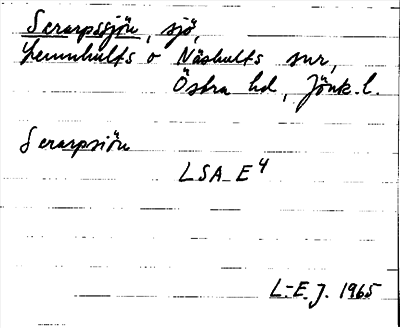 Serarpssjön, sjö,
Lemnhults o Näshults snr,
Östra hd, Jönk. l.
Serarpsiön
LSA_E4
L.-E. J. 1965